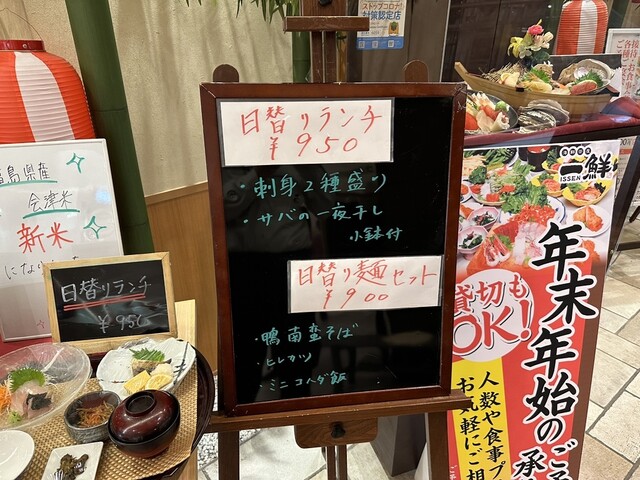 ストップコロナ!
対策認定店
日替りランチ
¥950
・刺身2種盛り
・サバの一夜干し
小鉢付
日替り麺セット
¥900
・鴨南蛮そば
・ヒレカツ
・ミニコハダ飯
島県産
会津米
新米
になり
日替りランチ
¥950
一鮮
ISSEN
年末年始のご
承
貸切も
OK!
人数や食事プ
お気軽にご相